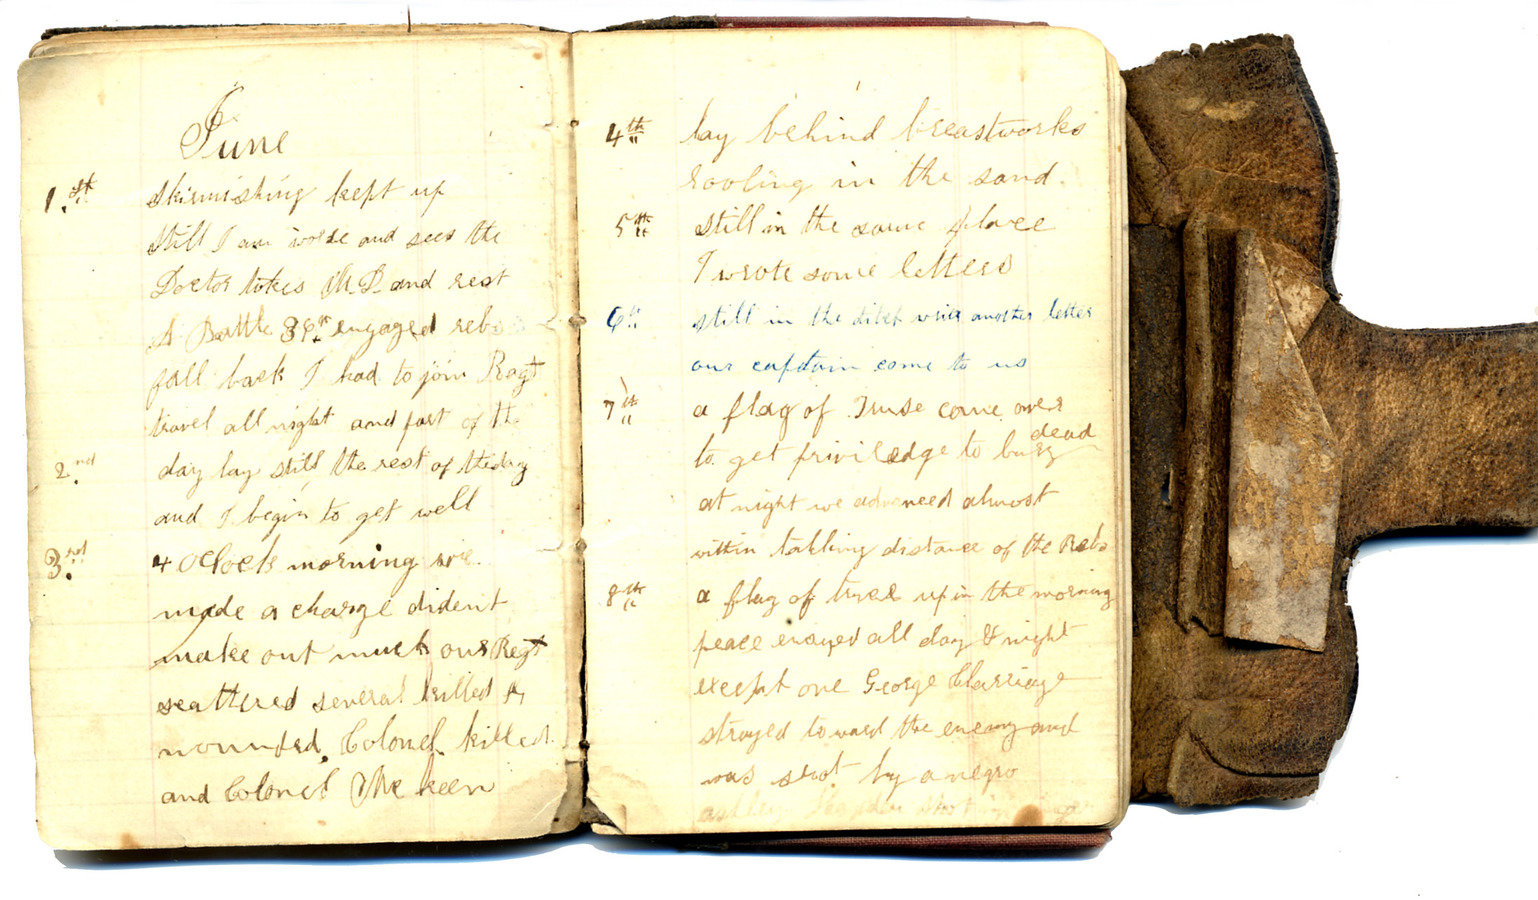 June
1.st skirmishing kept up
still I am worse and sees the
Doctor takes and rest
A Battle engaged rebs
fall back I had to join Regt
travel all night and part of the
2.nd day lay still the rest of the day
and I begin to get well
3.rd 4 OClock morning we
made a charge dident
make out much our Regt
scattered several killed &
wounded, Colonel killed
and Colonel McKeen
4th lay behind breastworks
rooling in the sand
5th still in the same place
I wrote some letters
6th still in the another letter
our captain come to us
7th a flag of Truse come over
to get priviledge to bury dead
at night we advanced almost
within talking distance of the Rebs
8th a flag of up in the morning
peace enoyed all day & night
except one George Clarriage
strayed toward the enemy and
was shot by a negro